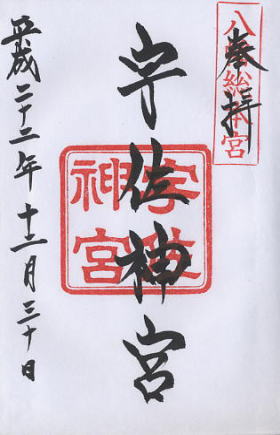 奉拝
八幡総本宮
宇佐神宮
宇佐神宮
平成二十二年十二月三十日